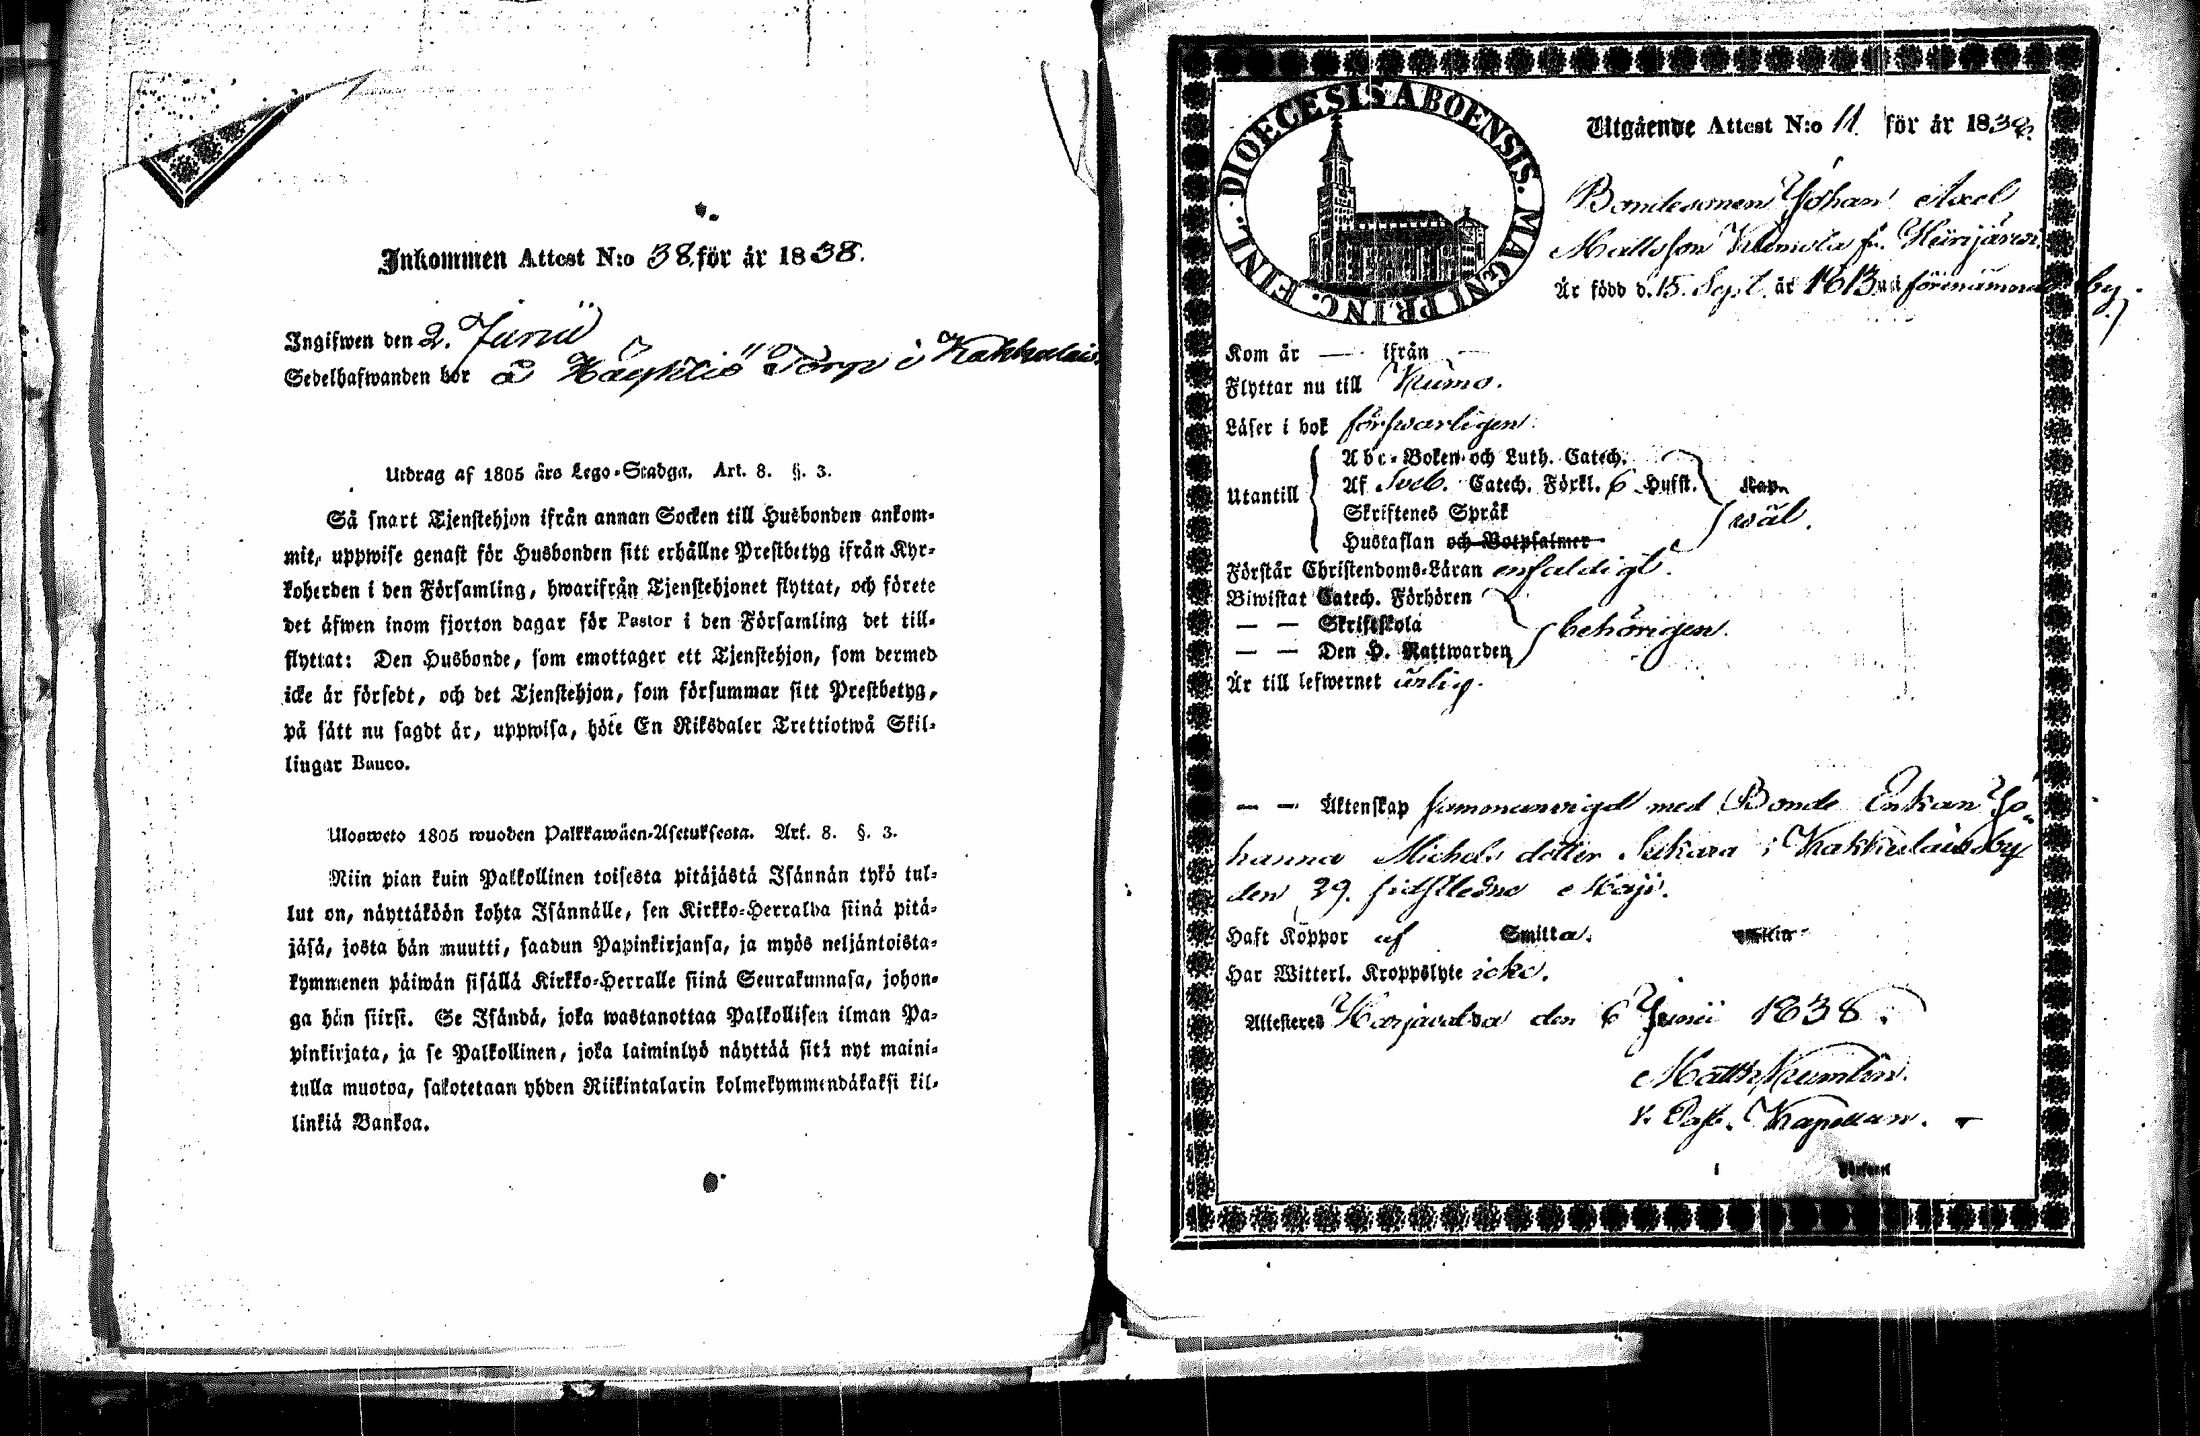 Inkommen Attest N:o 38. för år 1838.
Ingifwen den 2. Junii
Sedelhafwanden bor å Torp i Kakkulais
Utdrag af 1805 års Lego-Stadga. Art. 8. §. 3.
Så snart Tjenstehjon ifrån annan Socken till Husbonden ankom-
mit, uppwise genast för Husbonden sitt erhållne Prestbetyg ifrån Kyr-
koherden i den Församling, hwarifrån Tjenstehjonet flyttat, och förete
det äfwen inom fjorton dagar för Pastor i den Församling det till-
flyttat: Den Husbonde, som emottager ett Tjenstehjon, som dermed
icke är försedt, och det Tjenstehjon, som försummar sitt Prestbetyg,
på sätt nu sagdt är, uppwisa, böte En Riksdaler Trettiotwå Skil-
lingar Banco.
Ulosweto 1805 wuoden Palkkawäen-Asetuksesta. Art. 8. §. 3.
Niin pian kuin Palkollinen toisesta pitäjästä Isännän tykö tul-
lut on, näyttäköön kohta Isännälle, sen Kirkko-Herralda siinä pitä-
jäsä, josta hän muutti, saadun Papinkirjansa, ja myös neljäntoista-
kymmenen päiwän sisällä Kirkko-Herralle siinä Seurakunnasa, johon-
ga hän siirsi. Se Isändä, joka wastanottaa Palkollisen ilman Pa-
pinkirjata, ja se Palkollinen, joka laiminlyö näyttää sitä nyt maini-
tulla muotoa, sakotetaan yhden Riikintalarin kolmekymmendäkaksi kil-
linkiä Bankoa.
DIOECESIS ABOENSIS. MAGNI PRINC. FINL.
Utgående Attest N:o 11. för år 1838.
Bondesonen Johan Axel
Mattsson fr. Hiirijärwi
Är född d. 15. Sept. år 1813 uti förenämnde by.
Kom år — ifrån —
Flyttar nu till Kumo.
Läser i bok förswarligen.
Utantill
Abc-Boken och Luth. Catech.
Af Sveb. Catech. Förkl. 6 Hufst. Kap.
Skriftenes Språk
Hustaflan och Botpsalmer
wäl.
Förstår Christendoms-Läran enfaldigt.
Biwistat Catech. Förhören
— — Skriftskola
— — Den H. Nattwarden
behörigen.
Är till lefwernet ärlig.
— — Äktenskap sammanwigd med Bonde Enkan Jo-
hanna Michels dotter i Kakkulais by
den 29. sidstledne Maji.
Haft Koppor af Smitta.
Har Witterl. Kroppslyte icke.
Attesteres Harjavalda den 6 Junii 1838.
Kapellan.
i